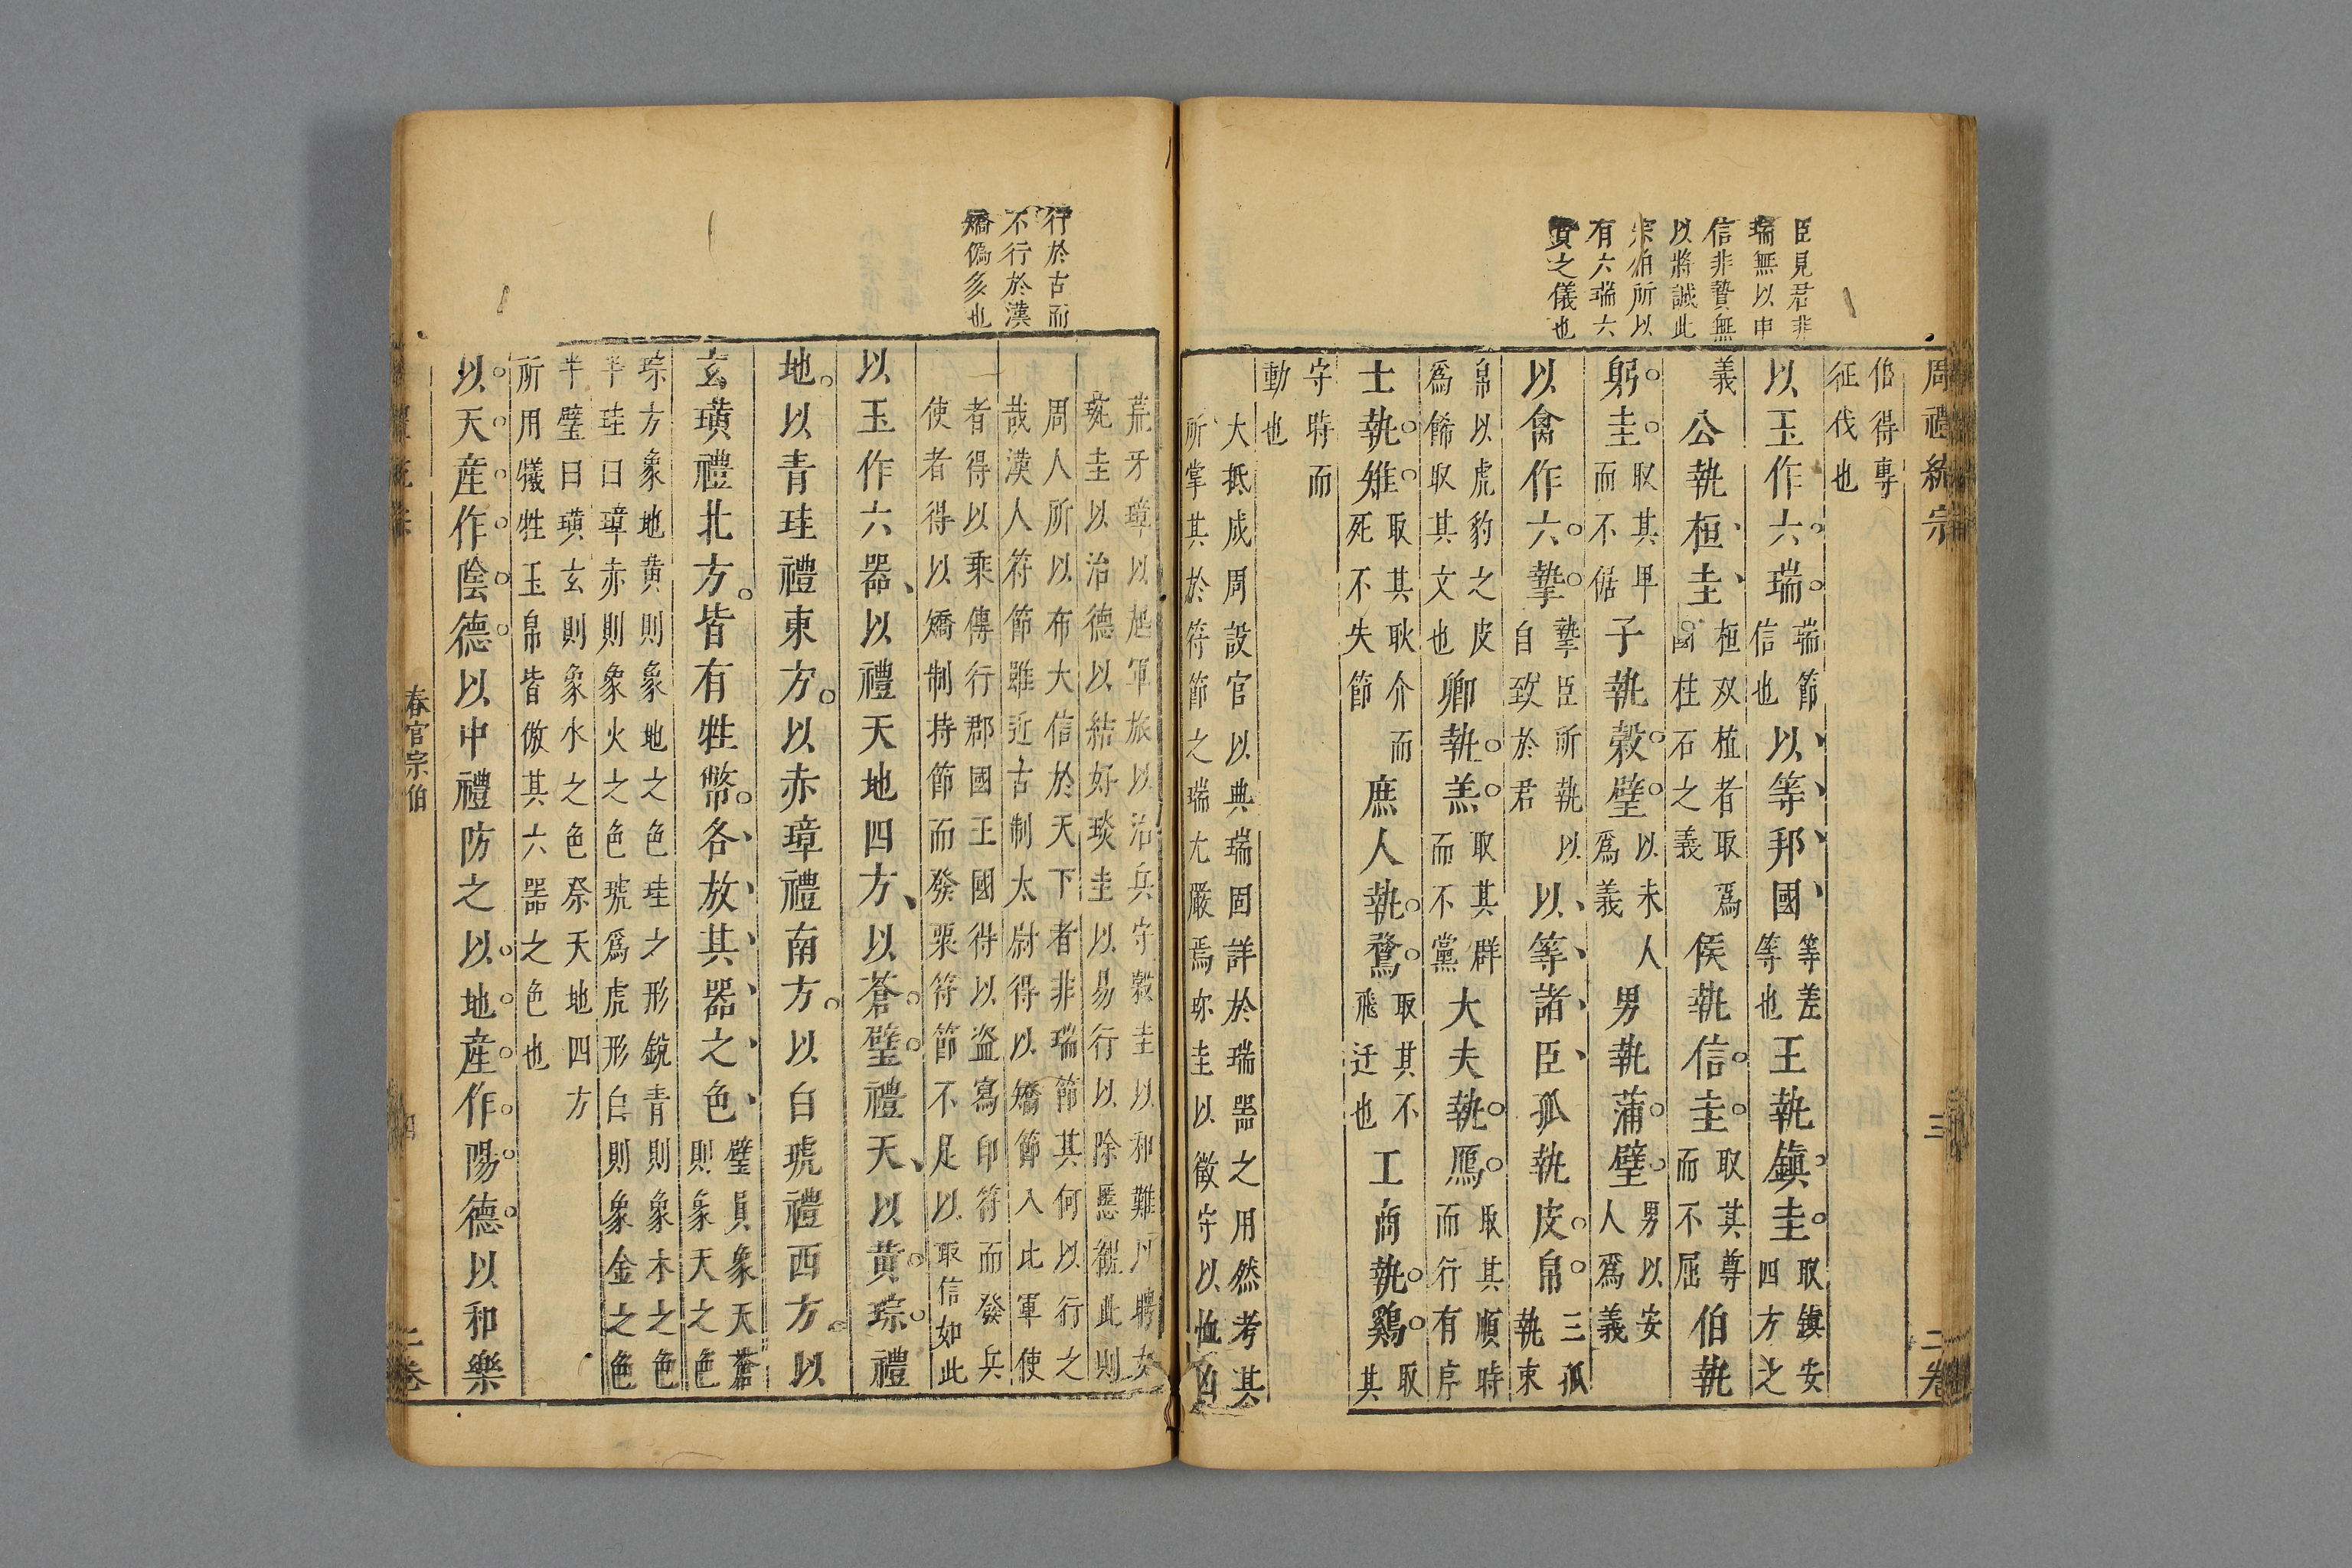 臣見君非
瑞無以申
信非贄無
以將誠此
宗伯所以
有六瑞六
贄之儀也
周禮統宗
三
二卷
伯得專
征伐也
以玉作六瑞
瑞節
信也
以等邦國
等差
等也
王執鎮圭
取鎮安
四方之
義
公執桓圭
桓双植者取爲
國柱石之義
侯執信圭
取其尊
而不屈
伯執
躬圭
取其卑
而不倨
子執穀璧
以未人
爲義
男執蒲璧
男以安
人爲義
以禽作六摯
摯臣所執以
自致於君
以等諸臣孤執皮帛
三孤
執束
帛以虎豹之皮
爲餙取其文也
卿執羔
取其群
而不黨
大夫執鴈
取其順時
而行有序
士執雉
取其耿介而
死不失節
庶人執鶩
取其不
飛迁也
工商執鷄
取
其
守時而
動也
大抵成周設官以典瑞固詳於瑞噐之用然考其
所掌其於符節之瑞尤嚴焉珎圭以徵守以恤凶
行於古而
不行於漢
矯僞多也
荒牙璋以起軍旅以治兵守穀圭以和難以聘女
琬圭以治德以結好琰圭以易行以除慝觀此則
周人所以布大信於天下者非瑞節其何以行之
哉漢人符節雖近古制太尉得以矯節入此軍使
者得以乘傳行郡國王國得以盗寫印符而發兵
使者得以矯制持節而發粟符節不足以取信如此
以玉作六噐以禮天地四方以蒼璧禮天以黄琮禮
地以青珪禮東方以赤璋禮南方以白琥禮西方以
玄璜禮北方皆有牲幣各放其噐之色
璧員象天蒼
則象天之色
琮方象地黄則象地之色珪之形銳青則象木之色
半珪曰璋赤則象火之色琥爲虎形白則象金之色
半璧曰璜玄則象水之色祭天地四方
所用犧牲玉帛皆倣其六噐之色也
以天産作陰德以中禮防之以地産作陽德以和樂
春官宗伯
四
二卷